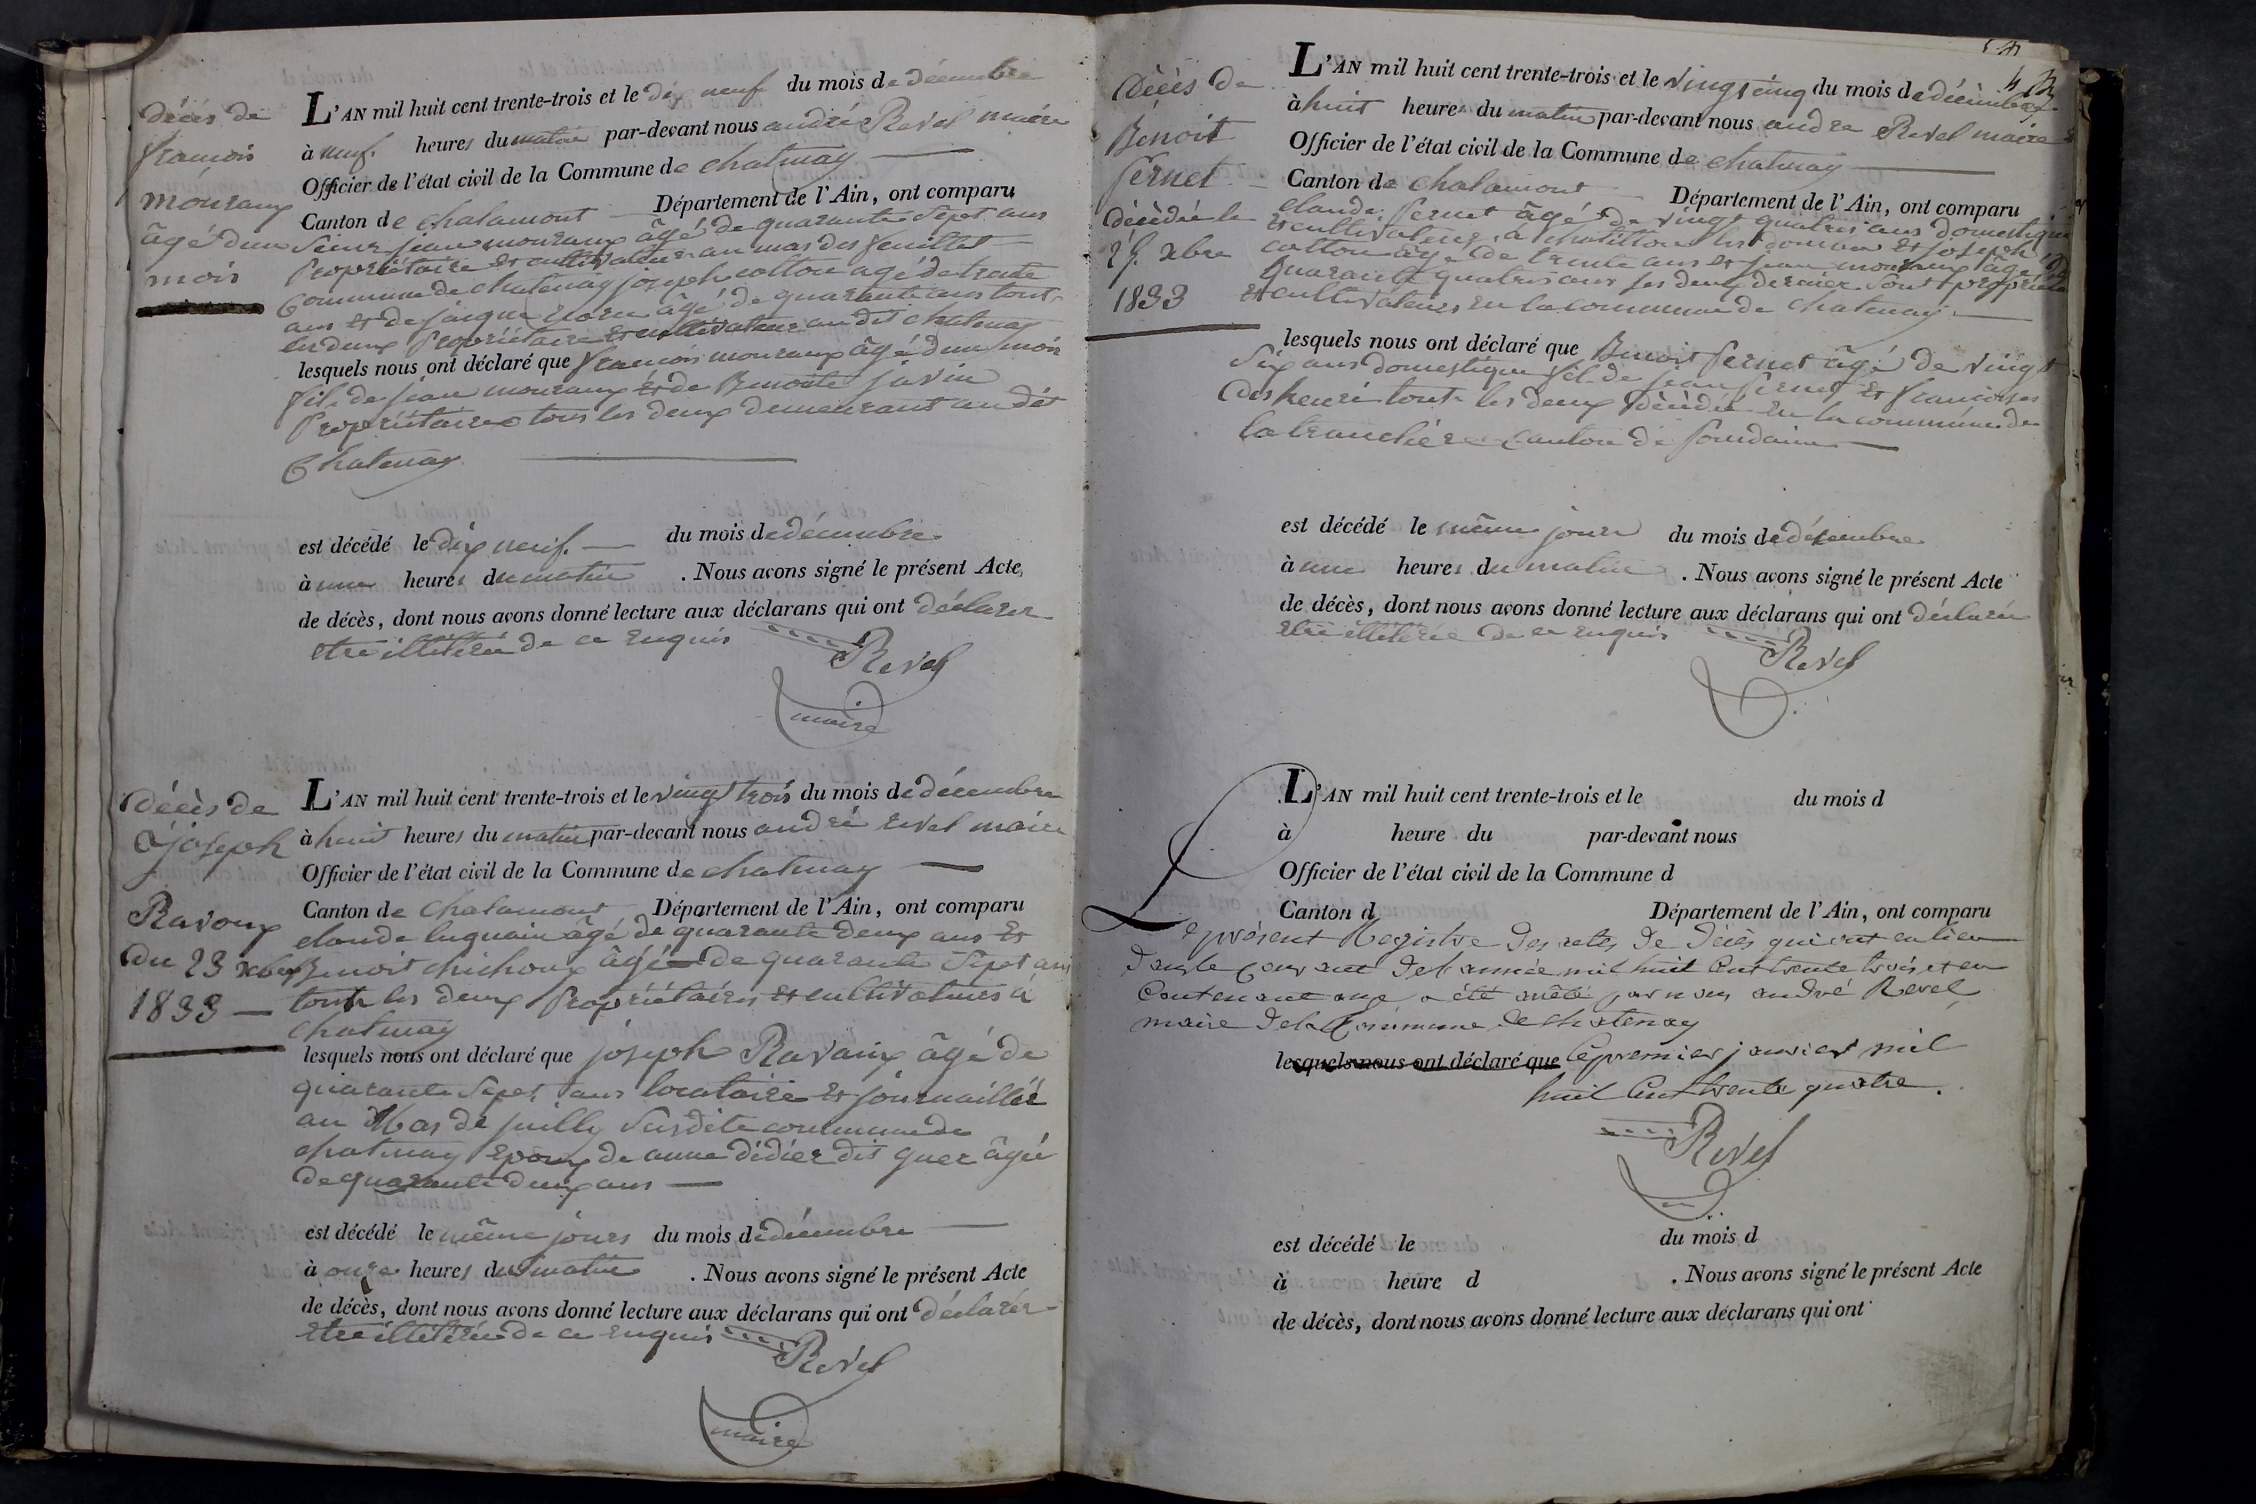 décès de
françois
mouraux
âgé d'un
mois
L'AN mil huit cent trente-trois et le dix neuf du mois de décembre
à neuf heures du matin par-devant nous andré Revel maire
Officier de l'état civil de la Commune de chatenay
Canton de chalamont Département de l'Ain, ont comparu
Sieur jean mouraux âgé de quarante Sept ans
Propriétaire et cultivateur au mas des feuillet
Commune de chatenay joseph cotton agé de trente
ans et de jacque âgé de quarante ans tout
les deux Propriétaire et cultivateur au dit chatenay
lesquels nous ont déclaré que françois mouraux âgé d'un mois
fils de jean mouraux et de Benoite juvin
Propriétaires tous les deux demeurant au dit
Chatenay
est décédé le dix neuf du mois de décembre
à une heures du matin . Nous avons signé le présent Acte
de décès, dont nous avons donné lecture aux déclarans qui ont déclarer
etre illitéré de ce enquis
Revel
maire
décès de
joseph
Ravoux
du 23 xbre
1833
L'AN mil huit cent trente-trois et le vingt trois du mois de décembre
à huit heures du matin par-devant nous andré revel maire
Officier de l'état civil de la Commune de chatenay
Canton de chalamont Département de l'Ain, ont comparu
claude luquain âgé de quarante deux ans et
Benoit chichoux âgé de quarante Sept ans
tout les deux Propriétaires et cultivateurs à
chatenay
lesquels nous ont déclaré que joseph Ravaux âgé de
quarante Sept ans locataire et journaillié
au Mas de juilly Susdite commune de
chatenay Epoux de anne didier dit guer âgée
de quarante deux ans
est décédé le même jours du mois de décembre
à onze heures du matin . Nous avons signé le présent Acte
de décès, dont nous avons donné lecture aux déclarans qui ont déclarer
etre illitéré de ce enquis
Revel
maire
décès de
Benoit
fernet
décédée le
25 xbre
1833
L'AN mil huit cent trente-trois et le vingt cinq du mois de décembre
à huit heures du matin par-devant nous andre Revel maire
Officier de l'état civil de la Commune de chatenay
Canton de chalamont Département de l'Ain, ont comparu
claude fernet âgé de vingt quatres ans domestique
et cultivateur à chatillon les et joseph
cotton âgé de trente ans et jean mouraux âgé de
quarante quatres ans les deux dernier Sont propriétaire
et cultivateurs en la commune de chatenay
lesquels nous ont déclaré que Benoit fernet âgé de vingt
Six ans domestique fils de jean fernet et françoises
tout les deux décédé en la commune de
la tranchère canton de
est décédé le même jour du mois de décembre
à une heures du matin . Nous avons signé le présent Acte
de décès, dont nous avons donné lecture aux déclarans qui ont déclarée
etre illitérée de ce enquis
Revel
L'AN mil huit cent trente-trois et le du mois d
à heure du par-devant nous
Officier de l'état civil de la Commune d
Canton d Département de l'Ain, ont comparu
Le présent Registre des actes de décès qui ont eu lieu
dans le courant de l'année mil huit cent trente trois et en
contenant onze a été arrêté par nous andré Revel
maire de la Commune de chatenay
lesquels nous ont déclaré que le premier janvier mil
huit cent trente quatre.
Revel
est décédé le du mois d
à heure d . Nous avons signé le présent Acte
de décès, dont nous avons donné lecture aux déclarans qui ont